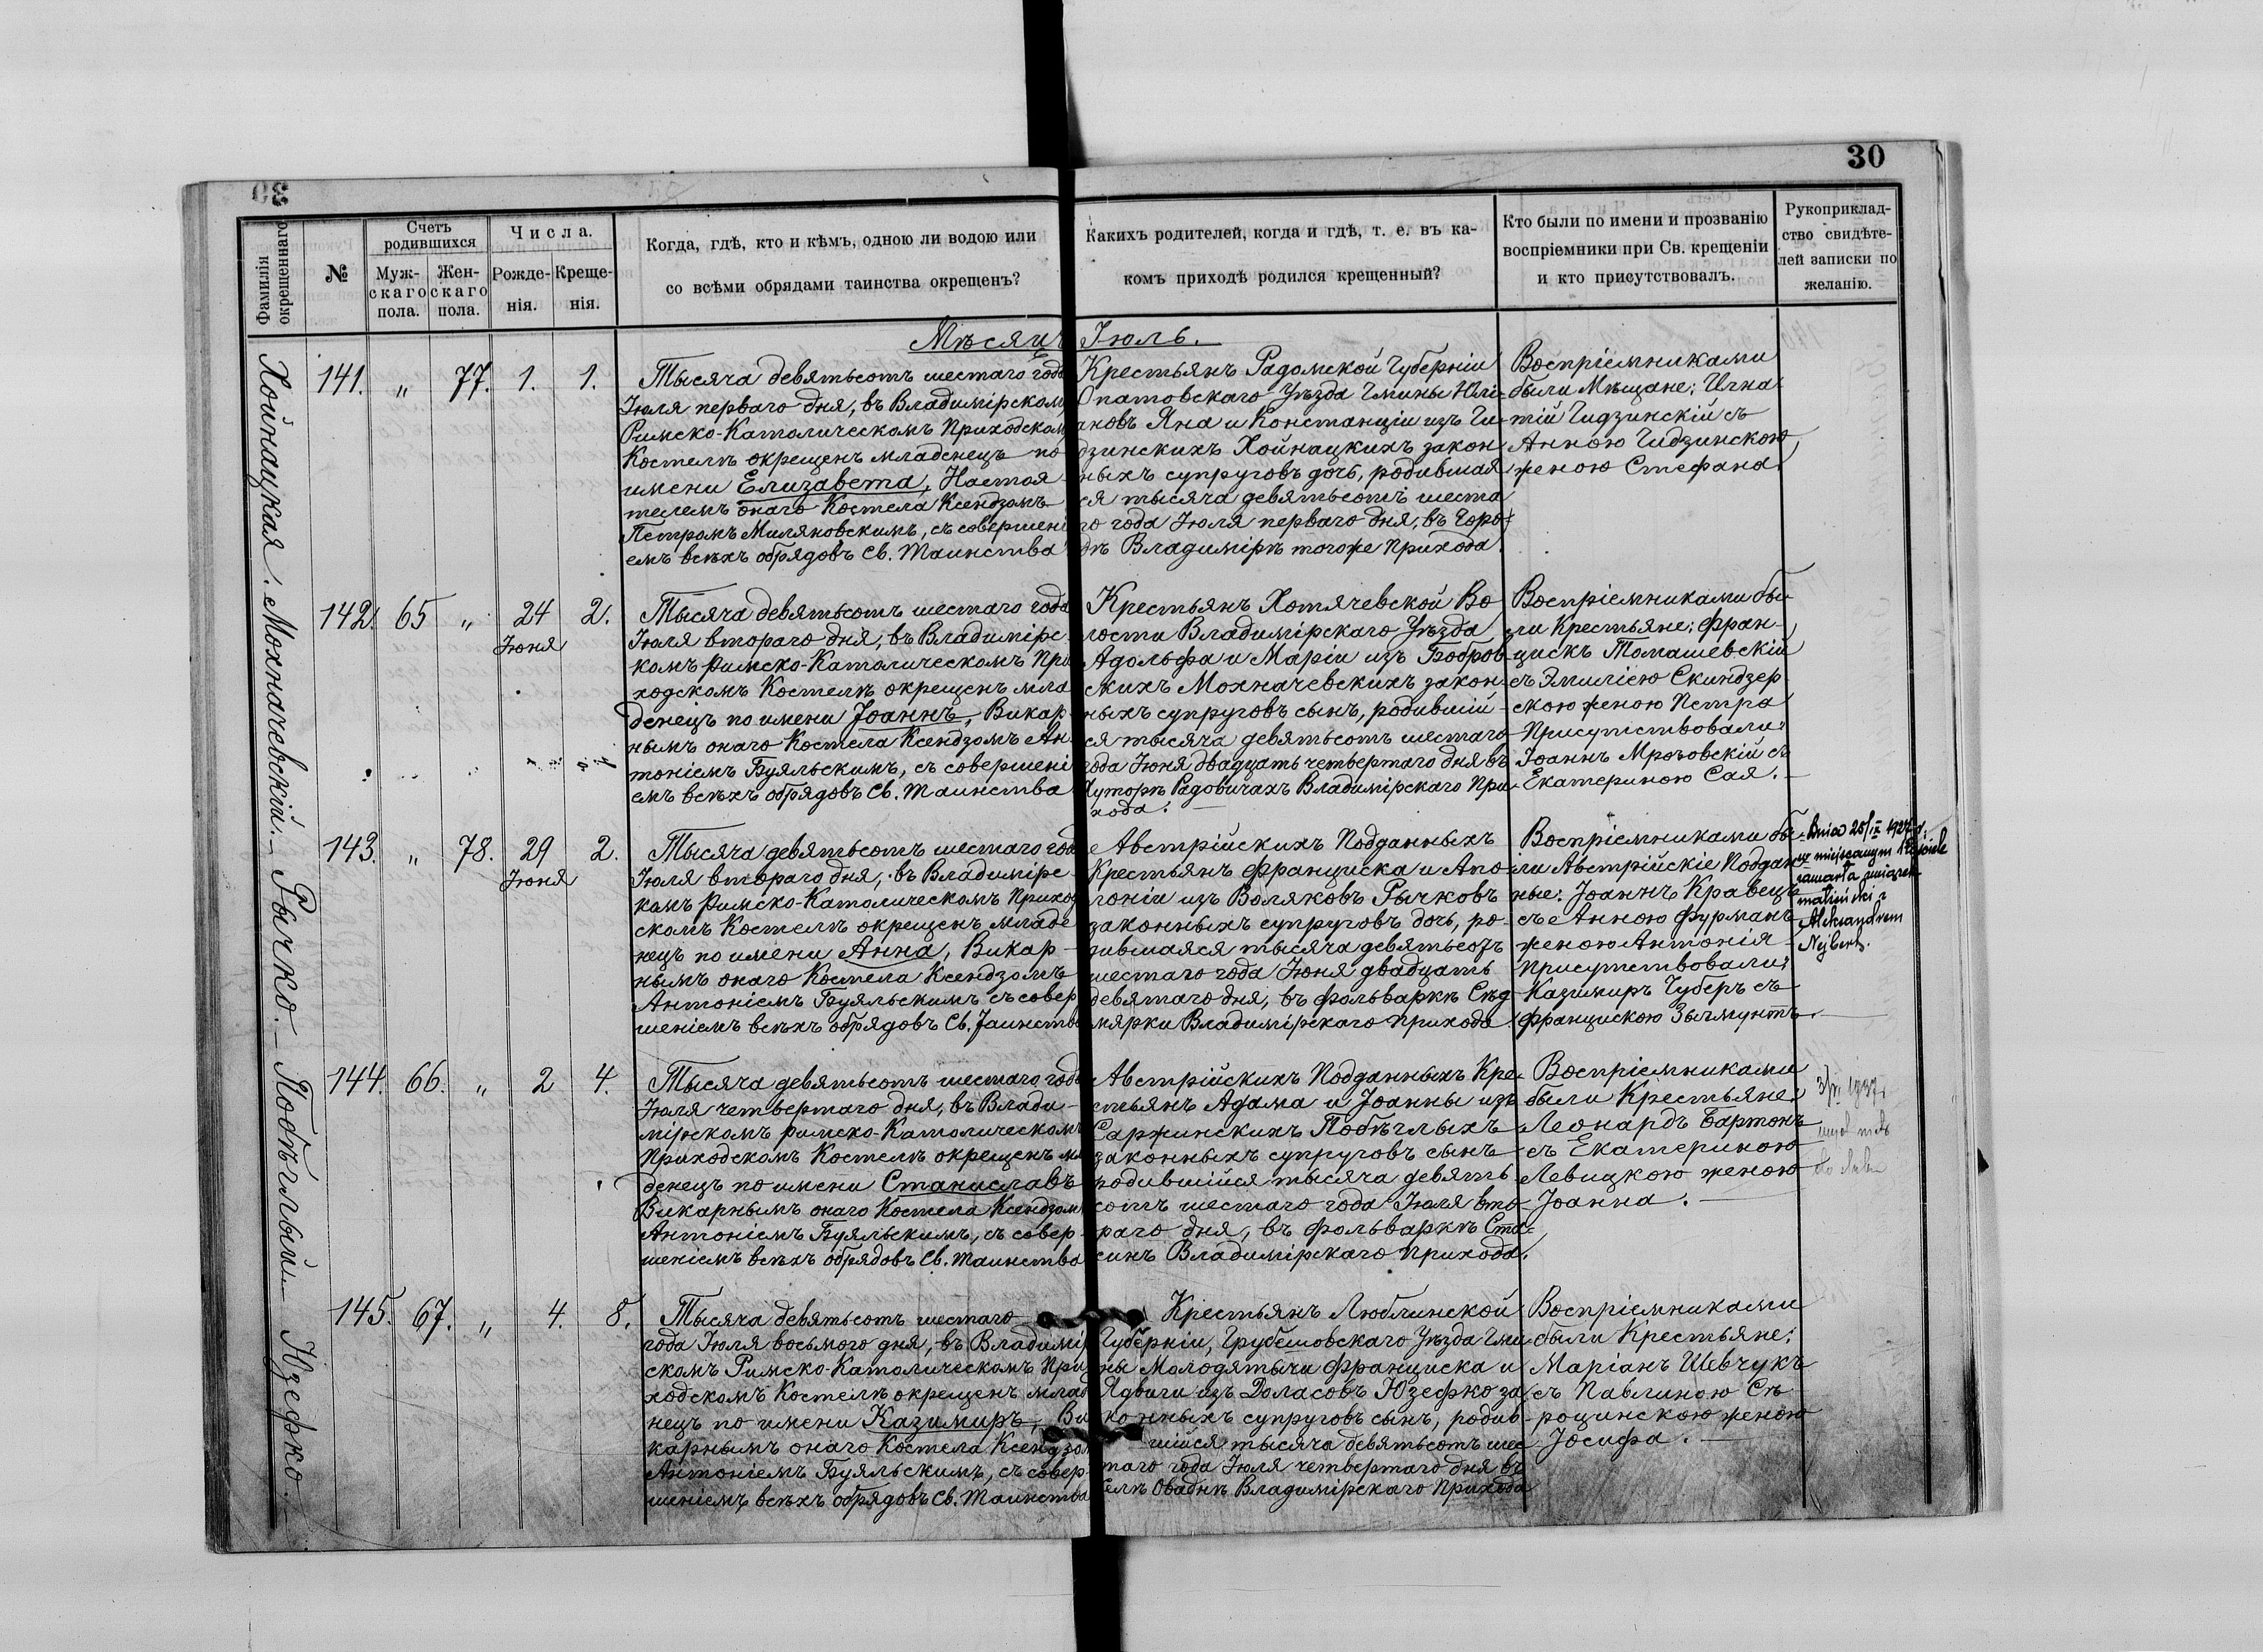 30
Фамилія окрещеннаго
№
Счетъ родившихся
Муж-
скаго
пола.
Жен-
скаго
пола.
Числа.
Рожде-
нія.
Креще-
нія.
Когда, гдѣ, кто и кѣмъ, одною ли водою или
со всѣми обрядами таинства окрещенъ?
Какихъ родителей, когда и гдѣ, т. е. въ ка-
комъ приходѣ родился крещенный?
Кто были по имени и прозванію
воспріемники при Св. крещеніи
и кто присутствовалъ.
Рукоприклад-
ство свидѣте-
лей записки по
желанію.
Мѣсяц Іюль.
Хойнацкая.
141. " 77. 1. 1.
Тысяча девятьсотъ шестаго года
Іюля перваго дня, въ Владимірском
Римско-Католическомъ Приходском
Костелѣ окрещенъ младенецъ по
имени Елизавета, Настоя
телемъ онаго Костела Ксендзомъ
Петромъ Миляновскимъ, съ совершені
емъ всѣхъ обрядовъ Св. Таинства
Крестьянъ Радомской Губерніи
Опатовскаго Уѣзда Гмины Юлі-
ановъ Яна и Констанціи изъ Ги-
дзинскихъ Хойнацкихъ закон
ныхъ супруговъ дочь, родившая
ся тысяча девятьсотъ шеста
го года Іюля перваго дня, въ Горо-
дѣ Владимірѣ тогоже Прихода.
Воспріемниками
были Мѣщане: Игна-
тій Гидзинскій съ
Анною Гидзинскою,
женою Стефана.
Мохначевскій.
142. 65 " 24 Іюня 2.
Тысяча девятьсотъ шестаго года
Іюля втораго дня, въ Владимірс-
комъ Римско-Католическомъ При
ходскомъ Костелѣ окрещенъ мла
денецъ по имени Іоаннъ, Викар-
нымъ онаго Костела Ксендзомъ Ан-
тоніемъ Буяльскимъ, съ совершені
емъ всѣхъ обрядовъ Св. Таинства
Крестьянъ Хотячевской Во
лости Владимірскаго Уѣзда
Адольфа и Маріи изъ Бобров-
скихъ Мохначевскихъ закон-
ныхъ супруговъ сынъ, родившій-
ся тысяча девятьсотъ шестаго
года Іюня двадцать четвертаго дня въ
Хуторѣ Радовичахъ Владимірскаго При-
хода.
Воспріемниками бы-
ли Крестьяне: Фран-
цискъ Томашевскій
съ Эмиліею Скиндзер-
скою женою Петра
Присутствовали:
Іоаннъ Мрозовскій съ
Екатериною Сая.
Рычко.
143. " 78. 29 Іюня 2.
Тысяча девятьсотъ шестаго год
Іюля втораго дня, въ Владимірс-
комъ Римско-Католическомъ Приход
скомъ Костелѣ окрещенъ младе
нецъ по имени Анна, Викар-
нымъ онаго Костела Ксендзомъ
Антоніемъ Буяльскимъ съ совер
шеніемъ всѣхъ обрядовъ Св. Таинства
Австрійскихъ Подданныхъ
Крестьянъ Франциска и Апо-
лоніи изъ Воляковъ Рычковъ
законныхъ супруговъ дочь, ро-
дившаяся тысяча девятьсотъ
шестаго года Іюня двадцать
девятаго дня, въ фольваркѣ Сѣд
мярки Владимірскаго Прихода
Воспріемниками бы-
ли Австрійскіе Поддан-
ные: Іоаннъ Кравецъ
съ Анною Фурманъ
женою Антонія
Присутствовали:
Казимиръ Губеръ съ
Францискою Зыгмунтъ.
Dnia 25/IX 1927 r.
w miejscowym Kościele
zawarła związek
małżeński z
Aleksandrem
Побѣглый.
144. 66. " 2 4.
Тысяча девятьсотъ шестаго года
Іюля четвертаго дня, въ Влади-
мірскомъ Римско-Католическомъ
Приходскомъ Костелѣ окрещенъ мл
денецъ по имени Станиславъ
Викарнымъ онаго Костела Ксендзом
Антоніемъ Буяльскимъ, съ совер-
шеніемъ всѣхъ обрядовъ Св. Таинства
Австрійскихъ Подданныхъ Кре-
стьянъ Адама и Іоанны изъ
Саржинскихъ Побѣглыхъ
законныхъ супруговъ сынъ
родившійся тысяча девять
сотъ шестаго года Іюля вто-
раго дня, въ фольваркѣ Ста-
синъ Владимірскаго Прихода.
Воспріемниками
были Крестьяне:
Леонардъ Бартонъ
съ Екатериною
Левицкою женою
Іоанна.
Юзефко.
145. 67. " 4. 8.
Тысяча девятьсотъ шестаго
года Іюля восьмого дня, въ Владимір
скомъ Римско-Католическомъ При
ходскомъ Костелѣ окрещенъ млад
нецъ по имени Казимиръ, Ви
карнымъ онаго Костела Ксендзом
Антоніемъ Буяльскимъ, съ совер-
шеніемъ всѣхъ обрядовъ Св. Таинства
Крестьянъ Люблинской
Губерніи, Грубешовскаго Уѣзда Гми
ны Молодятычи Франциска и
Ядвиги изъ Доласовъ Юзефко за
конныхъ супруговъ сынъ, родив-
шійся тысяча девятьсотъ шес
таго года Іюля четвертаго дня въ
Селѣ Оваднѣ Владимірскаго Прихода
Воспріемниками
были Крестьяне:
Маріанъ Шевчукъ
съ Павлиною Сѣ-
роцинскою женою
Іосифа.